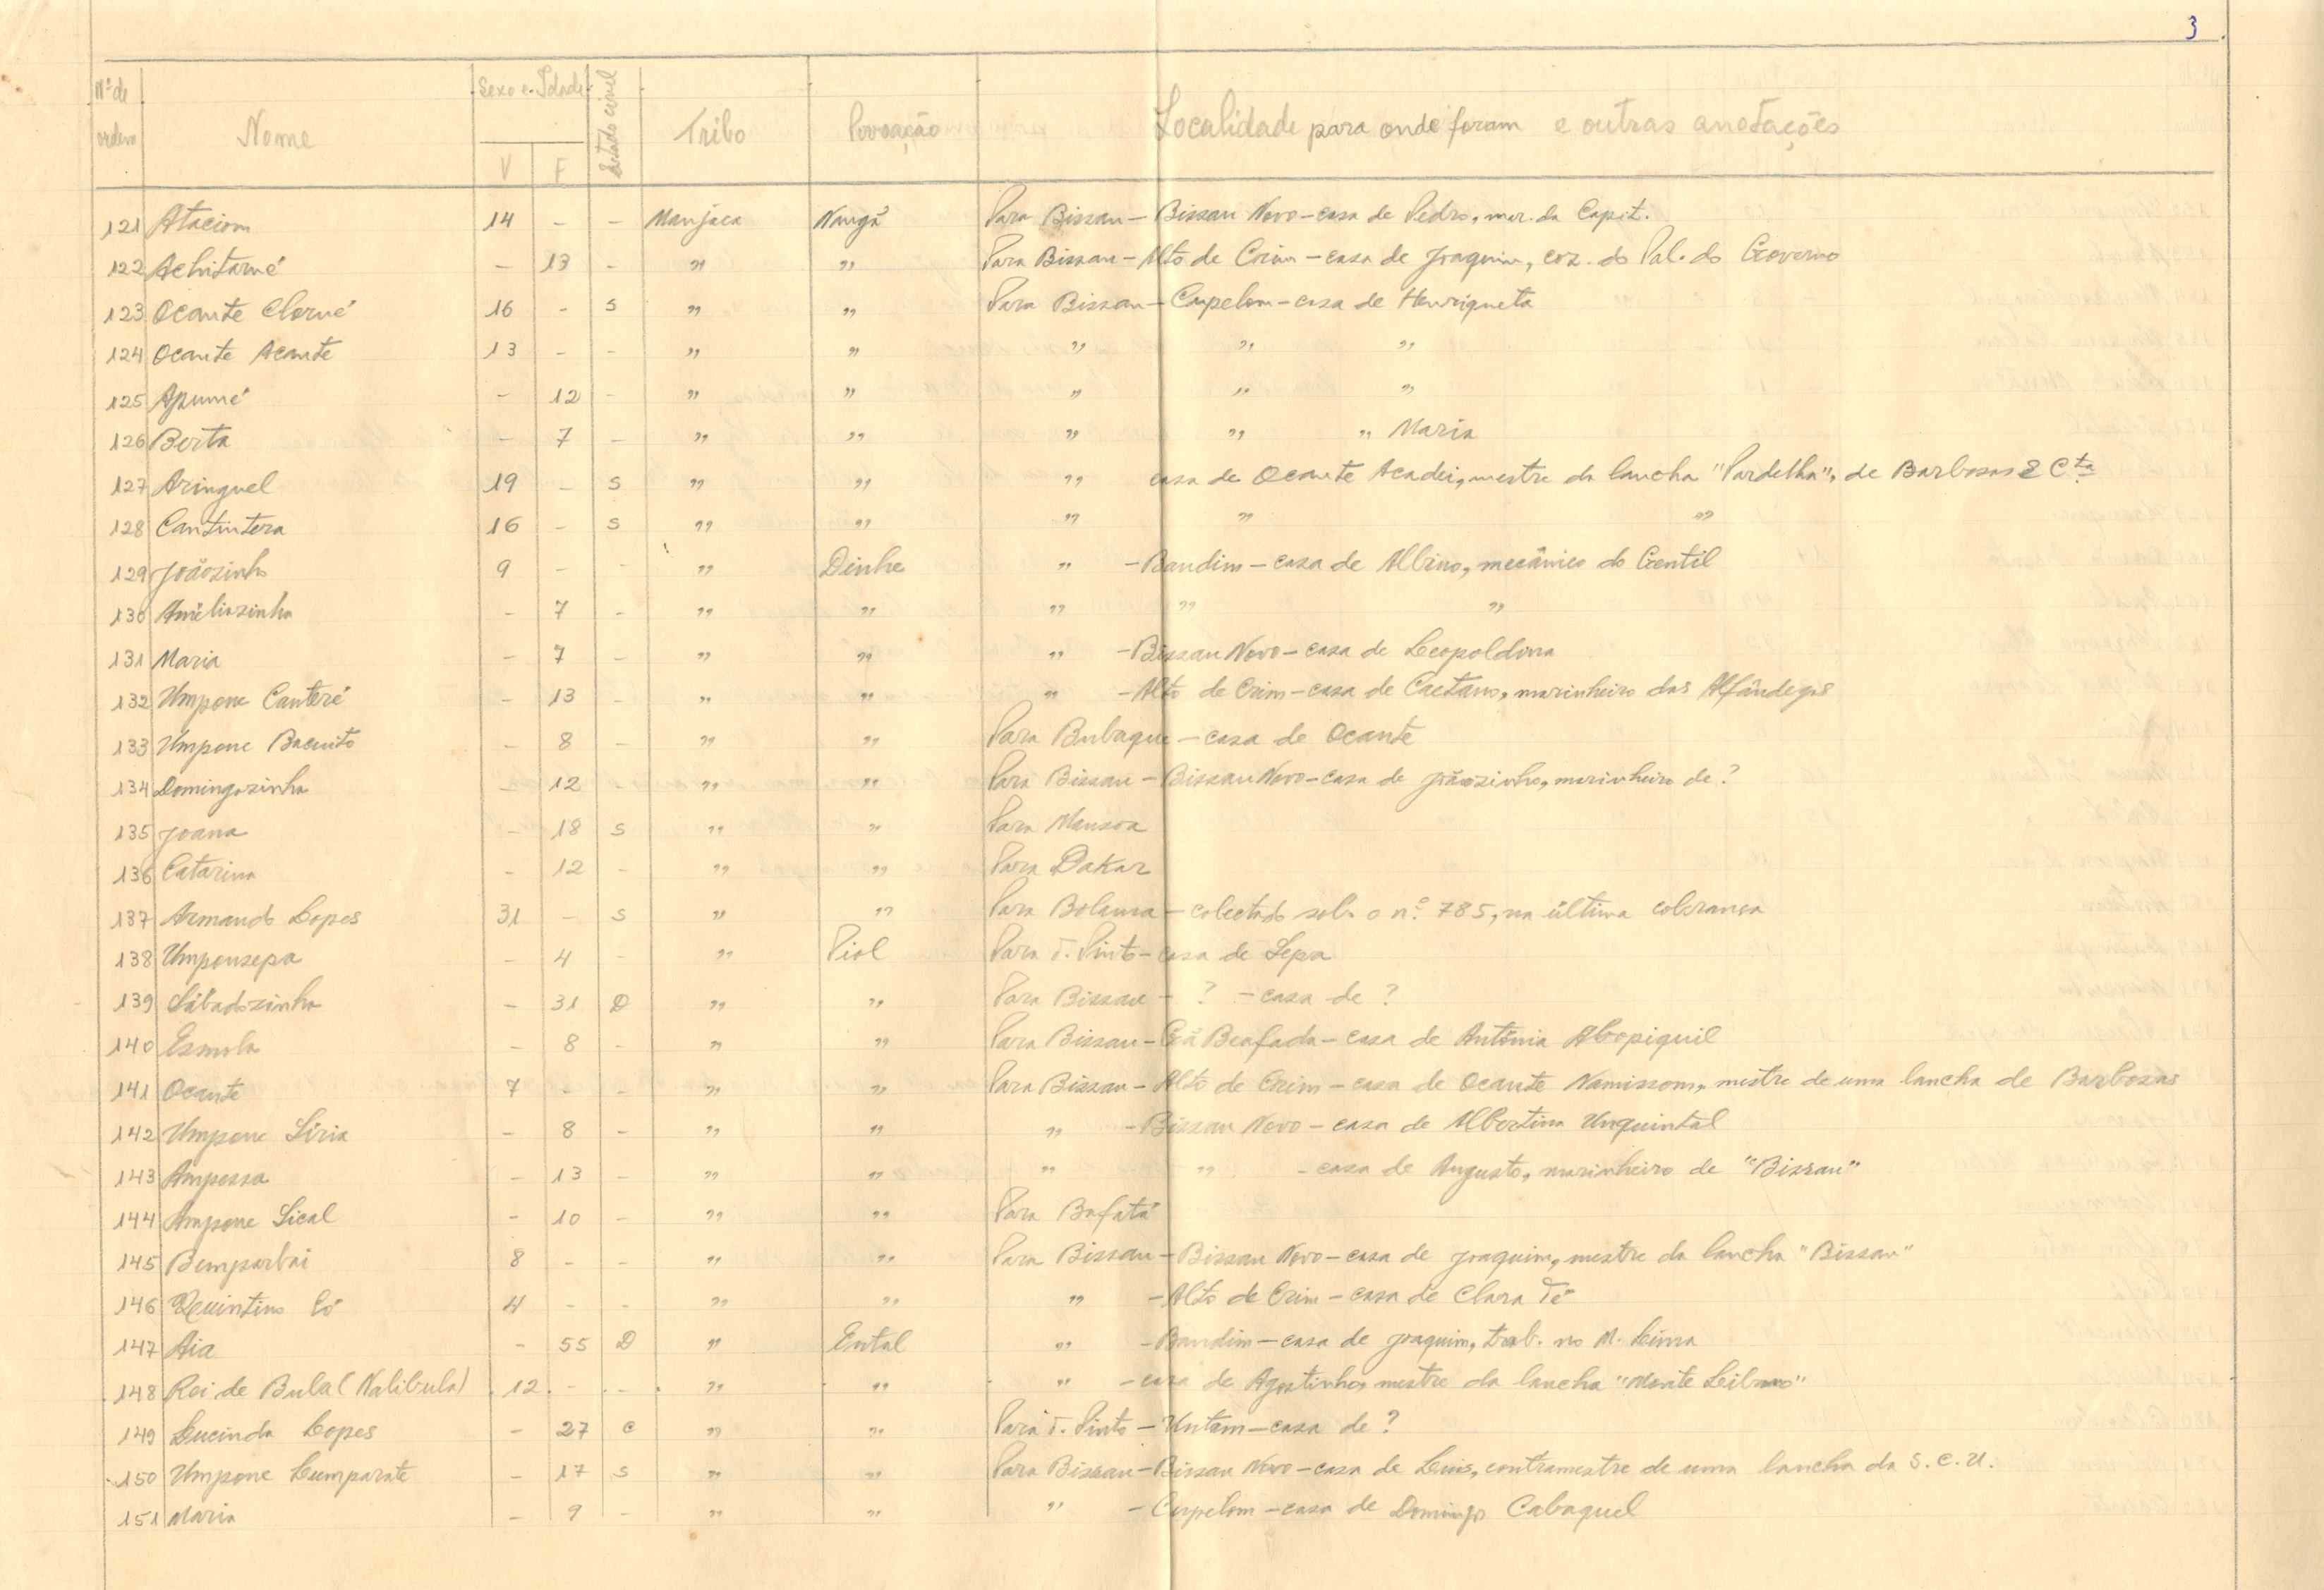 3
Nº de ordem Nome Sexo e Idade V F Estado civil Tribo Povoação Localidade para onde foram e outras anotações
121 Ataciom 14 - - Manjaca Nangã Para Bissau - Bissau Novo - casa de Pedro, mar. da Capit.
122 Achitamé - 13 - " " Para Bissau - Alto de Crim - casa de Joaquim, coz. do Pal. do Governo
123 Ocante Clorné 16 - S " " Para Bissau - Cupelom - casa de Henriqueta
124 Ocante Acante 13 - - " " " " "
125 Apumé - 12 - " " " " "
126 Berta - 7 - " " " " " Maria
127 Aringuel 19 - S " " " casa de Ocante Acadei, mestre da lancha "Pardelha", de Barbosas & Cta
128 Cantintera 16 - S " " " " "
129 Joãozinho 9 - - " Dinhe " - Bandim - casa de Albino, mecânico do Gentil
130 Améliazinha - 7 - " " " " "
131 Maria - 7 - " " " - Bissau Novo - casa de Leopoldina
132 Umpone Canteré - 13 - " " " - Alto de Crim - casa de Caetano, marinheiro das Alfândegas
133 Umpone Bacuito - 8 - " " Para Bubaque - casa de Ocante
134 Domingazinha - 12 - " " Para Bissau - Bissau Novo - casa de Joãozinho, marinheiro de ?
135 Joana - 18 S " " Para Mansoa
136 Catarina - 12 - " " Para Dakar
137 Armando Lopes 31 - S " " Para Bolama - colectado sob o nº 785, na última cobrança
138 Umponsepa - 4 - " Piol Para T. Pinto - casa de Sepa
139 Sábadozinha - 31 D " " Para Bissau - ? - casa de ?
140 Esmola - 8 - " " Para Bissau - Gã Beafada - casa de Antónia Abopiquil
141 Ocante 7 - - " " Para Bissau - Alto de Crim - casa de Ocante Namissom, mestre de uma lancha de Barbosas
142 Umpone Síria - 8 - " " " - Bissau Novo - casa de Albertina Unquintal
143 Ampessa - 13 - " " " " - casa de Augusto, marinheiro de "Bissau"
144 Ampone Sical - 10 - " " Para Bafatá
145 Bemparbai 8 - - " " Para Bissau - Bissau Novo - casa de Joaquim, mestre da lancha "Bissau"
146 Quintino Có 4 - - " " " - Alto de Crim - casa de Clara Té
147 Aia - 55 D " Ental " - Bandim - casa de Joaquim, trab. no M. Lima
148 Rei de Bula (Nalibula) 12 - - " " " - casa de Agostinho, mestre da lancha "Monte Líbano"
149 Lucinda Lopes - 27 C " " Para T. Pinto - Untam - casa de ?
150 Umpone Lumparate - 17 S " " Para Bissau - Bissau Novo - casa de Luis, contramestre de uma lancha da S. C. U.
151 Maria - 9 - " " " - Cupelom - casa de Domingo Cabaquel